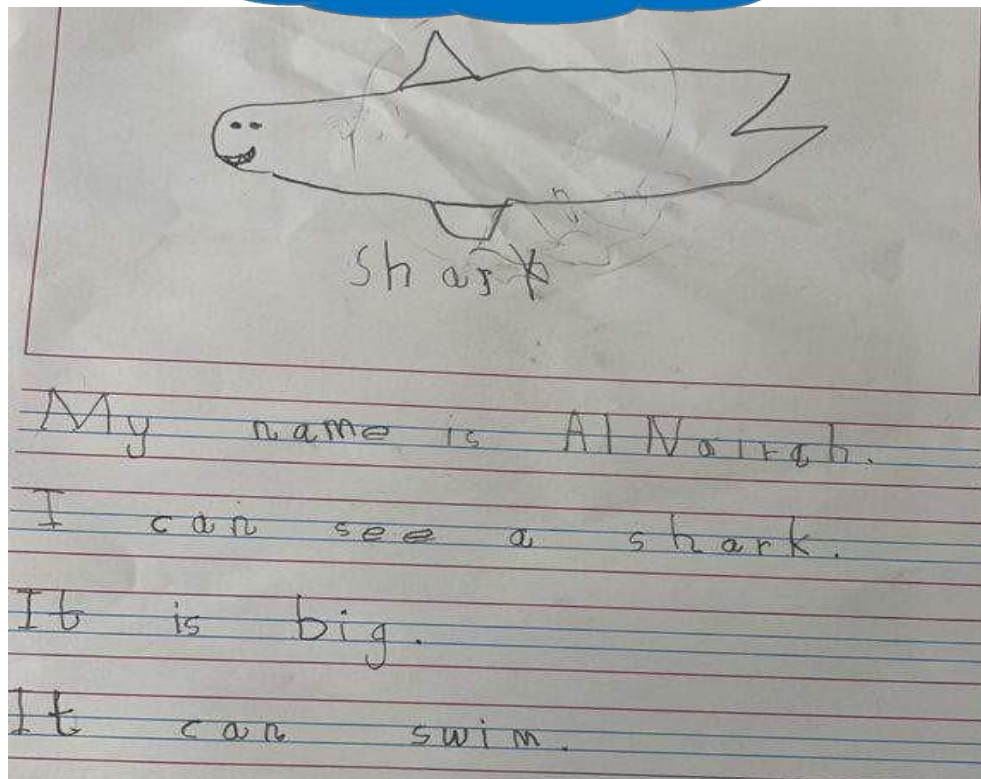 shark
My name is Al Nairah.
I can see a shark.
It is big.
It can swim.